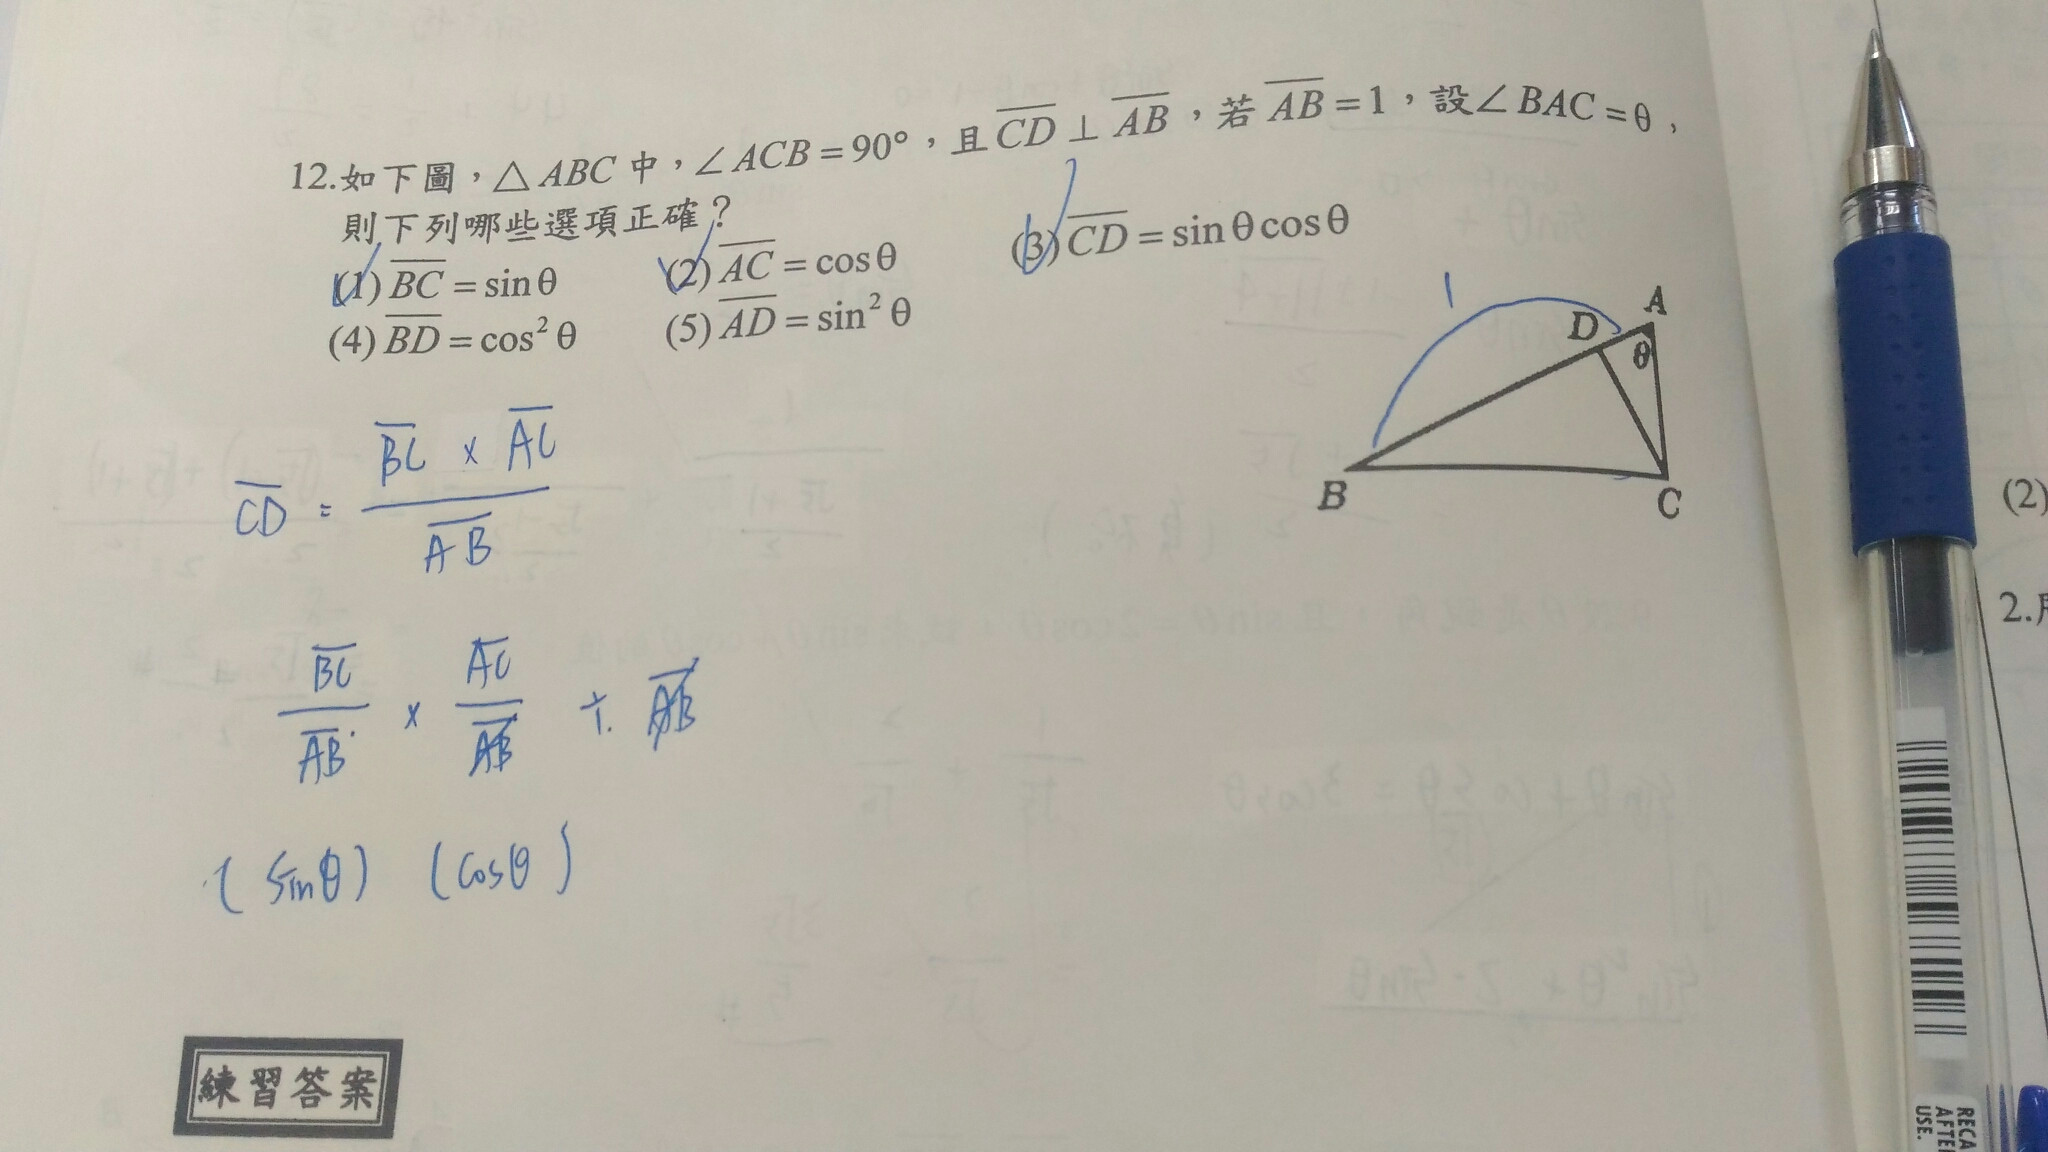 12.如下圖，△ABC中，∠ACB=90°，且CD⊥AB，若AB=1，設∠BAC=θ，
則下列哪些選項正確？
(1) BC=sinθ (2) AC=cosθ (3) CD=sinθcosθ
(4) BD=cos²θ (5) AD=sin²θ
1
A
D
θ
B
C
CD = BC × AC / AB
BC / AB × AC / AB ÷ AB
(sinθ) (cosθ)
練習答案
(2)
2.
RECA
AFTE
USE.